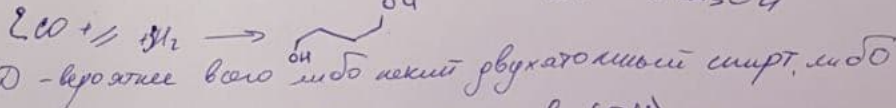 2CO + // + 3H₂ ⟶ OH OH
D - вероятнее всего либо некий двухатомный спирт, либо